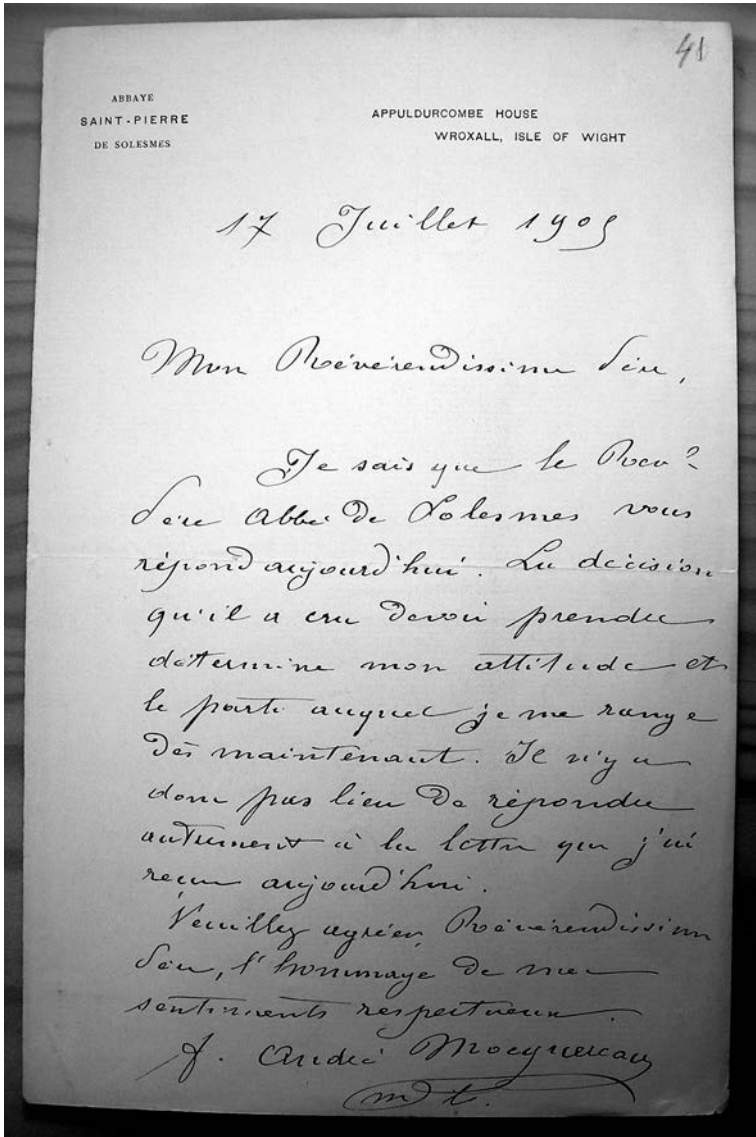 41
ABBAYE
SAINT-PIERRE
DE SOLESMES
APPULDURCOMBE HOUSE
WROXALL, ISLE OF WIGHT
17 Juillet 1905
Mon Révérendissime Père,
Je sais que le Rev.
Père Abbé de Solesmes vous
répond aujourd'hui. La décision
qu'il a cru devoir prendre
détermine mon attitude et
le parti auquel je me range
dès maintenant. Il n'y a
donc pas lieu de répondre
autrement à la lettre que j'ai
reçue aujourd'hui.
Veuillez agréer, Révérendissime
Père, l'hommage de mes
sentiments respectueux.
f. André Mocquereau